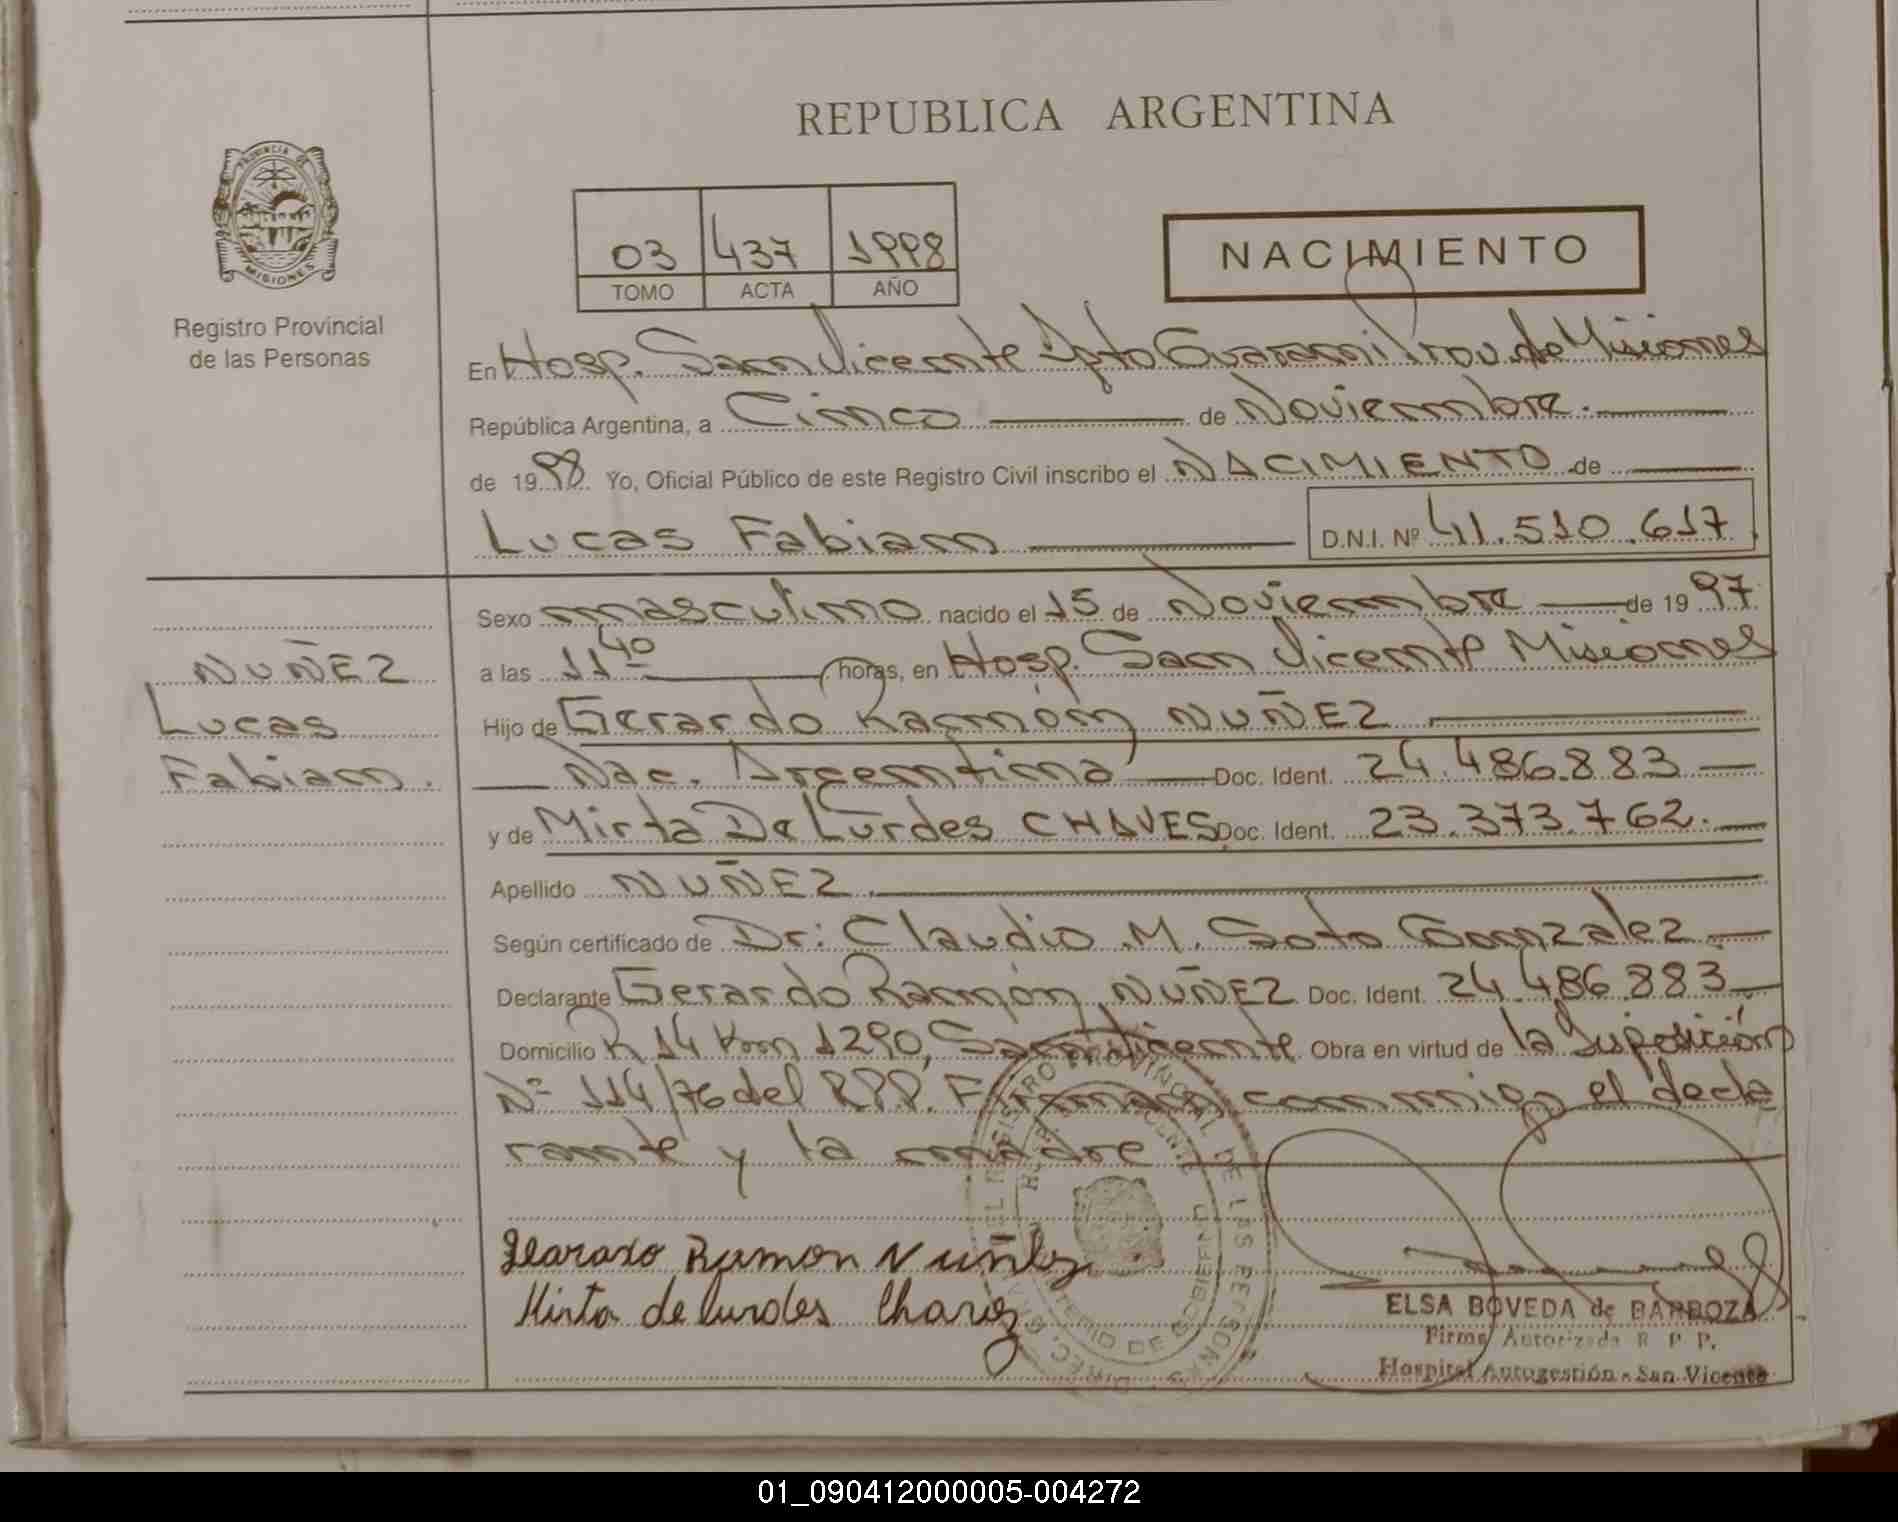 REPUBLICA ARGENTINA
PROVINCIA DE
MISIONES
Registro Provincial
de las Personas
03 437 1998
TOMO ACTA AÑO
NACIMIENTO
En Hosp. San Vicente Dpto Guarani Prov. de Misiones
República Argentina, a Cinco de Noviembre.
de 1998 Yo, Oficial Público de este Registro Civil inscribo el NACIMIENTO de
Lucas Fabian D.N.I. Nº 41.510.617
Sexo masculino nacido el 15 de Noviembre de 1997
a las 11 40 horas, en Hosp. San Vicente Misiones
NUÑEZ
Lucas
Fabian.
Hijo de Gerardo Ramón NUÑEZ
Nac. Argentina Doc. Ident. 24.486.883
y de Mirta De Lurdes CHAVES Doc. Ident. 23.373.762.
Apellido NUÑEZ.
Según certificado de Dr: Claudio M. Soto Gonzalez
Declarante Gerardo Ramón NUÑEZ Doc. Ident. 24.486.883
Domicilio R 14 Km 1290, San Vicente Obra en virtud de la
Nº 114/76 del R.P.P. Firman conmigo el decla
rante y la madre
Ramon Nuñez
Mirta de Lurdes Chavez
REGISTRO PROVINCIAL DE LAS PERSONAS
DE GOBIERNO
ELSA BOVEDA de BARBOZA
Firma Autorizada R P P.
Hospital Autogestión - San Vicente
01_090412000005-004272